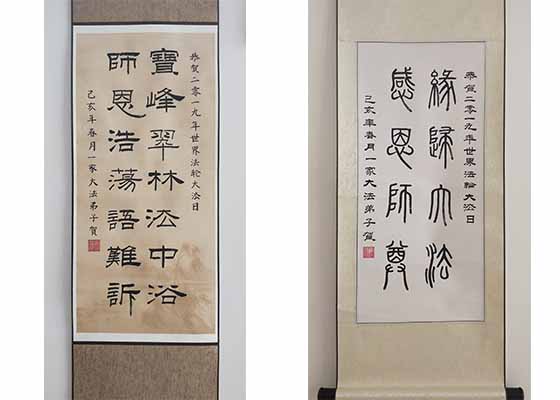 恭賀二零一九年世界法轮大法日
寶峰翠林法中浴
師恩浩蕩語難訴
己亥年春月一家大法弟子賀
恭賀二零一九年世界法輪大法日
緣歸大法
感恩師尊
己亥年春月一家大法弟子賀